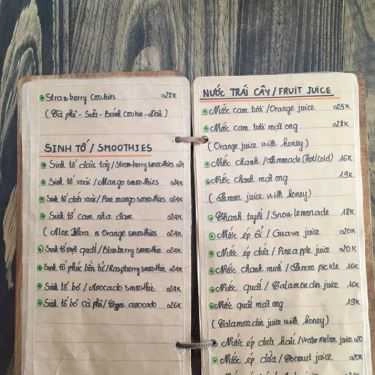 Strawberry Cookies 028K
(Cà phê - Sữa - Bánh Cookie - Đá)
SINH TỐ / SMOOTHIES
Sinh tố dâu tây / Strawberry smoothies
Sinh tố xoài / Mango smoothies 024K
Sinh tố dứa xoài / Pine mango smoothies 024K
Sinh tố cam nha đam 024K
(Aloe Vera & Orange smoothies)
Sinh tố việt quất / Blueberry smoothies 024K
Sinh tố phúc bồn tử / Raspberry smoothies 024K
Sinh tố bơ / Avocado smoothies 024K
Sinh tố bơ cà phê / avocado 026K
NƯỚC TRÁI CÂY / FRUIT JUICE
Nước cam tươi / Orange juice 025K
Nước cam tươi mật ong 028K
(Orange juice with honey)
Nước chanh / Lemonade (hot/cold) 16K
Nước chanh mật ong 19K
(Lemon juice with honey)
Chanh tuyết / Snow lemonade 18K
Nước ép ổi / Guava juice 020K
Nước ép dứa / Pineapple juice 020K
Nước chanh muối / Lemon pickle 16K
Nước quất / Calamondin juice 16K
Nước quất mật ong 19K
(Calamondin juice with honey)
Nước ép dưa hấu / Watermelon juice 020
Nước ép dừa / Coconut juice 020K